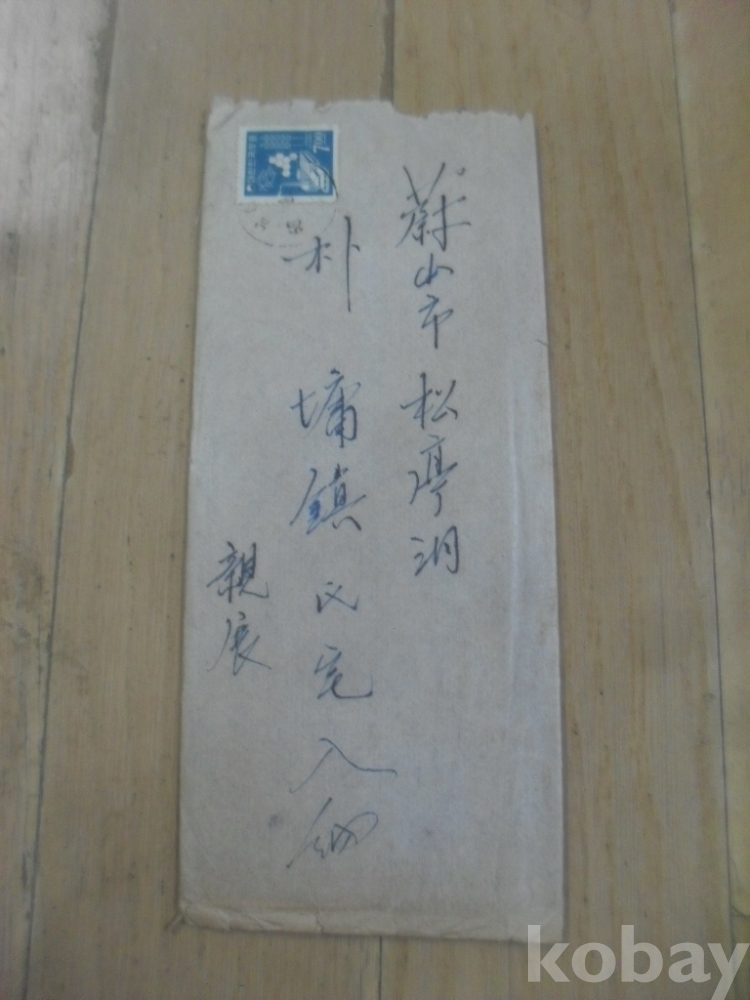 蔚山市 松亭洞
朴 墉鎮 氏宅 入納
親展
kobay